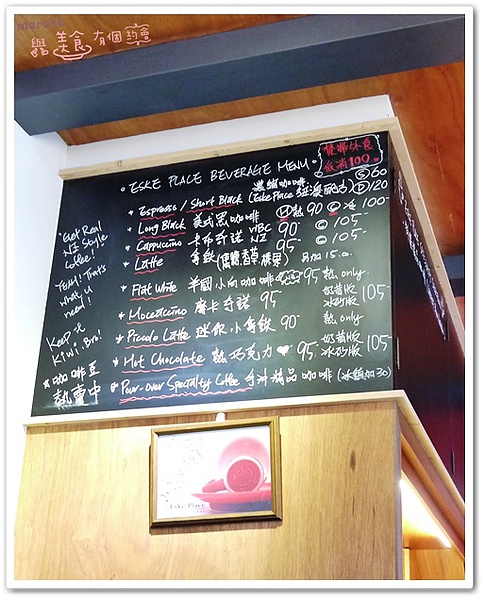 與美食有個約會
ESKE PLACE BEVERAGE MENU
低消100
濃縮咖啡 Ⓢ60
* Espresso / Short Black (Eske Place Ⓓ120
* Long Black 美式黑咖啡 Ⓗ熱90 Ⓒ冰100-
* Cappuccino 卡布奇諾 95- Ⓒ105-
* Latte 拿鐵 95- Ⓒ105-
* Flat White 95 熱 only
* Moccaccino 摩卡奇諾 95- 冰沙版 105-
* Piccolo Latte 迷你小拿鐵 90- 熱 only
* Hot Chocolate 熱巧克力♥ 95- 冰沙版 105-
* Pour-over Specialty Coffee 手沖精品咖啡 (冰鎮加30)
"Get Real
NZ Style
Coffee!
YEAH! That's
what u
need!
Keep it
Kiwi, Bro!
*咖啡豆
熱賣中
Eske Place